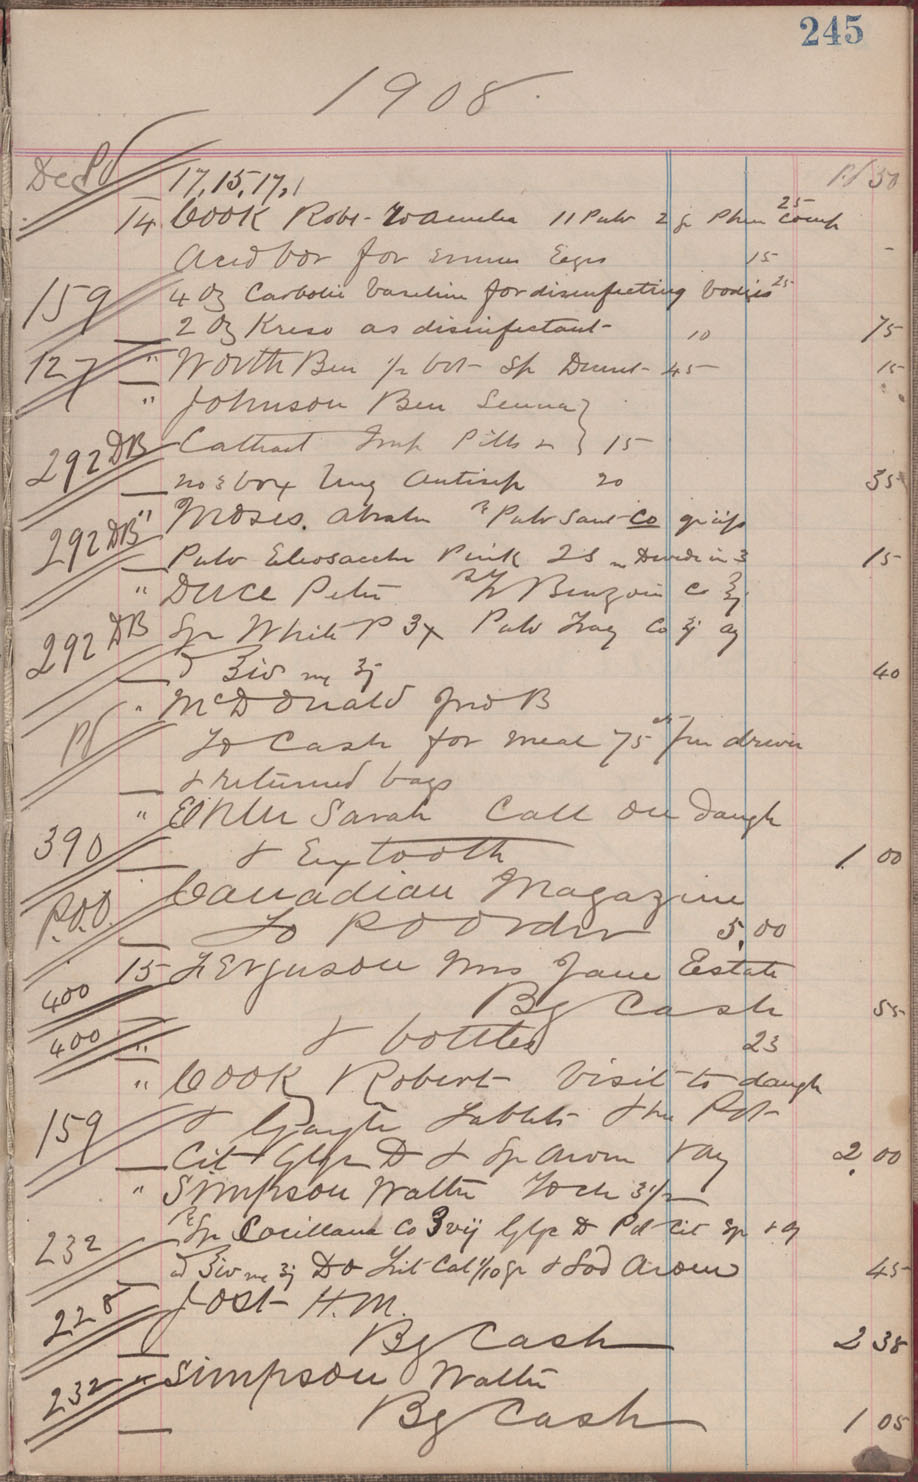 245
1908.
Dec Pd 17, 15, 17, Pd 50
14 Cook Robt 11 Pulv 2 gr Phen Comp 25
Acid bor for Eyes 15
159 4 oz Carbolic Vaseline for disinfecting bodies 25
2 oz Kreso as disinfectant 10 75
127 " Worth Ben 1/2 bot Sp 45 15
" Johnson Ben Senna
292 DB Cathart Imp Pills 15
no 3 box Ung Antisep 20 35
292 DB " Moses. Pulv Co
Pulv Eleosacch Pink 23 m Divide in 3 15
" Duce Peter Benzoin Co
292 DB Sp White P 3x Pulv Trag Co aq
40
" McDonald Jno B
Pd To Cash for meal 75 driver
& returned bags
" Sarah Call on Daugh
390 & Ex tooth 1.00
Canadian Magazine
P.O.O. To P O Order 5.00
15 Ferguson Mrs Jane Estate
400 By Cash 55
400 " & bottles 23
" Cook Robert Visit to daugh
159 & Gargle Tablets & Pot
Cit Glyc D & Sp Arom & aq 2.00
" Simpson Walter
232 Sp Cocillana Co Glyc D Pot Cit Sp & aq
Do Trit Cal 1/10 gr & Sod Arom 45
228 Jost H. M.
By Cash 2 38
232 " Simpson Walter
By Cash 1 05